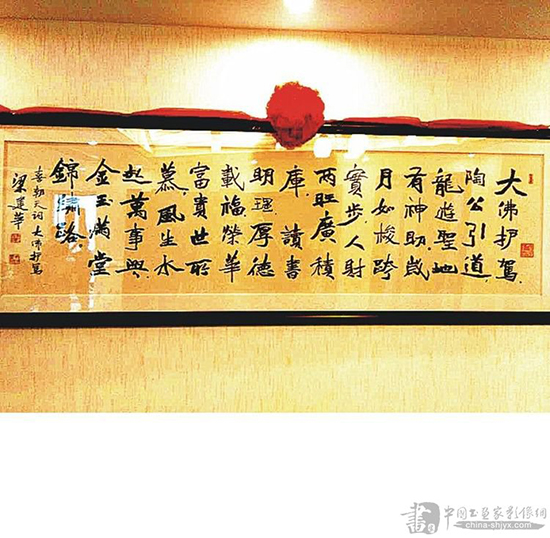 大佛护駕,
陶公引道,
龍遊聖地
有神助歲
月如梭跨
實步,人財
两旺廣積
庫,讀書
明理厚德
載福榮華
富貴世所
慕,風生水
起萬事興,
金玉滿堂
錦繡路.
天詞大佛护駕
梁建華
書
中国书画家影像网
china-shjyx.com